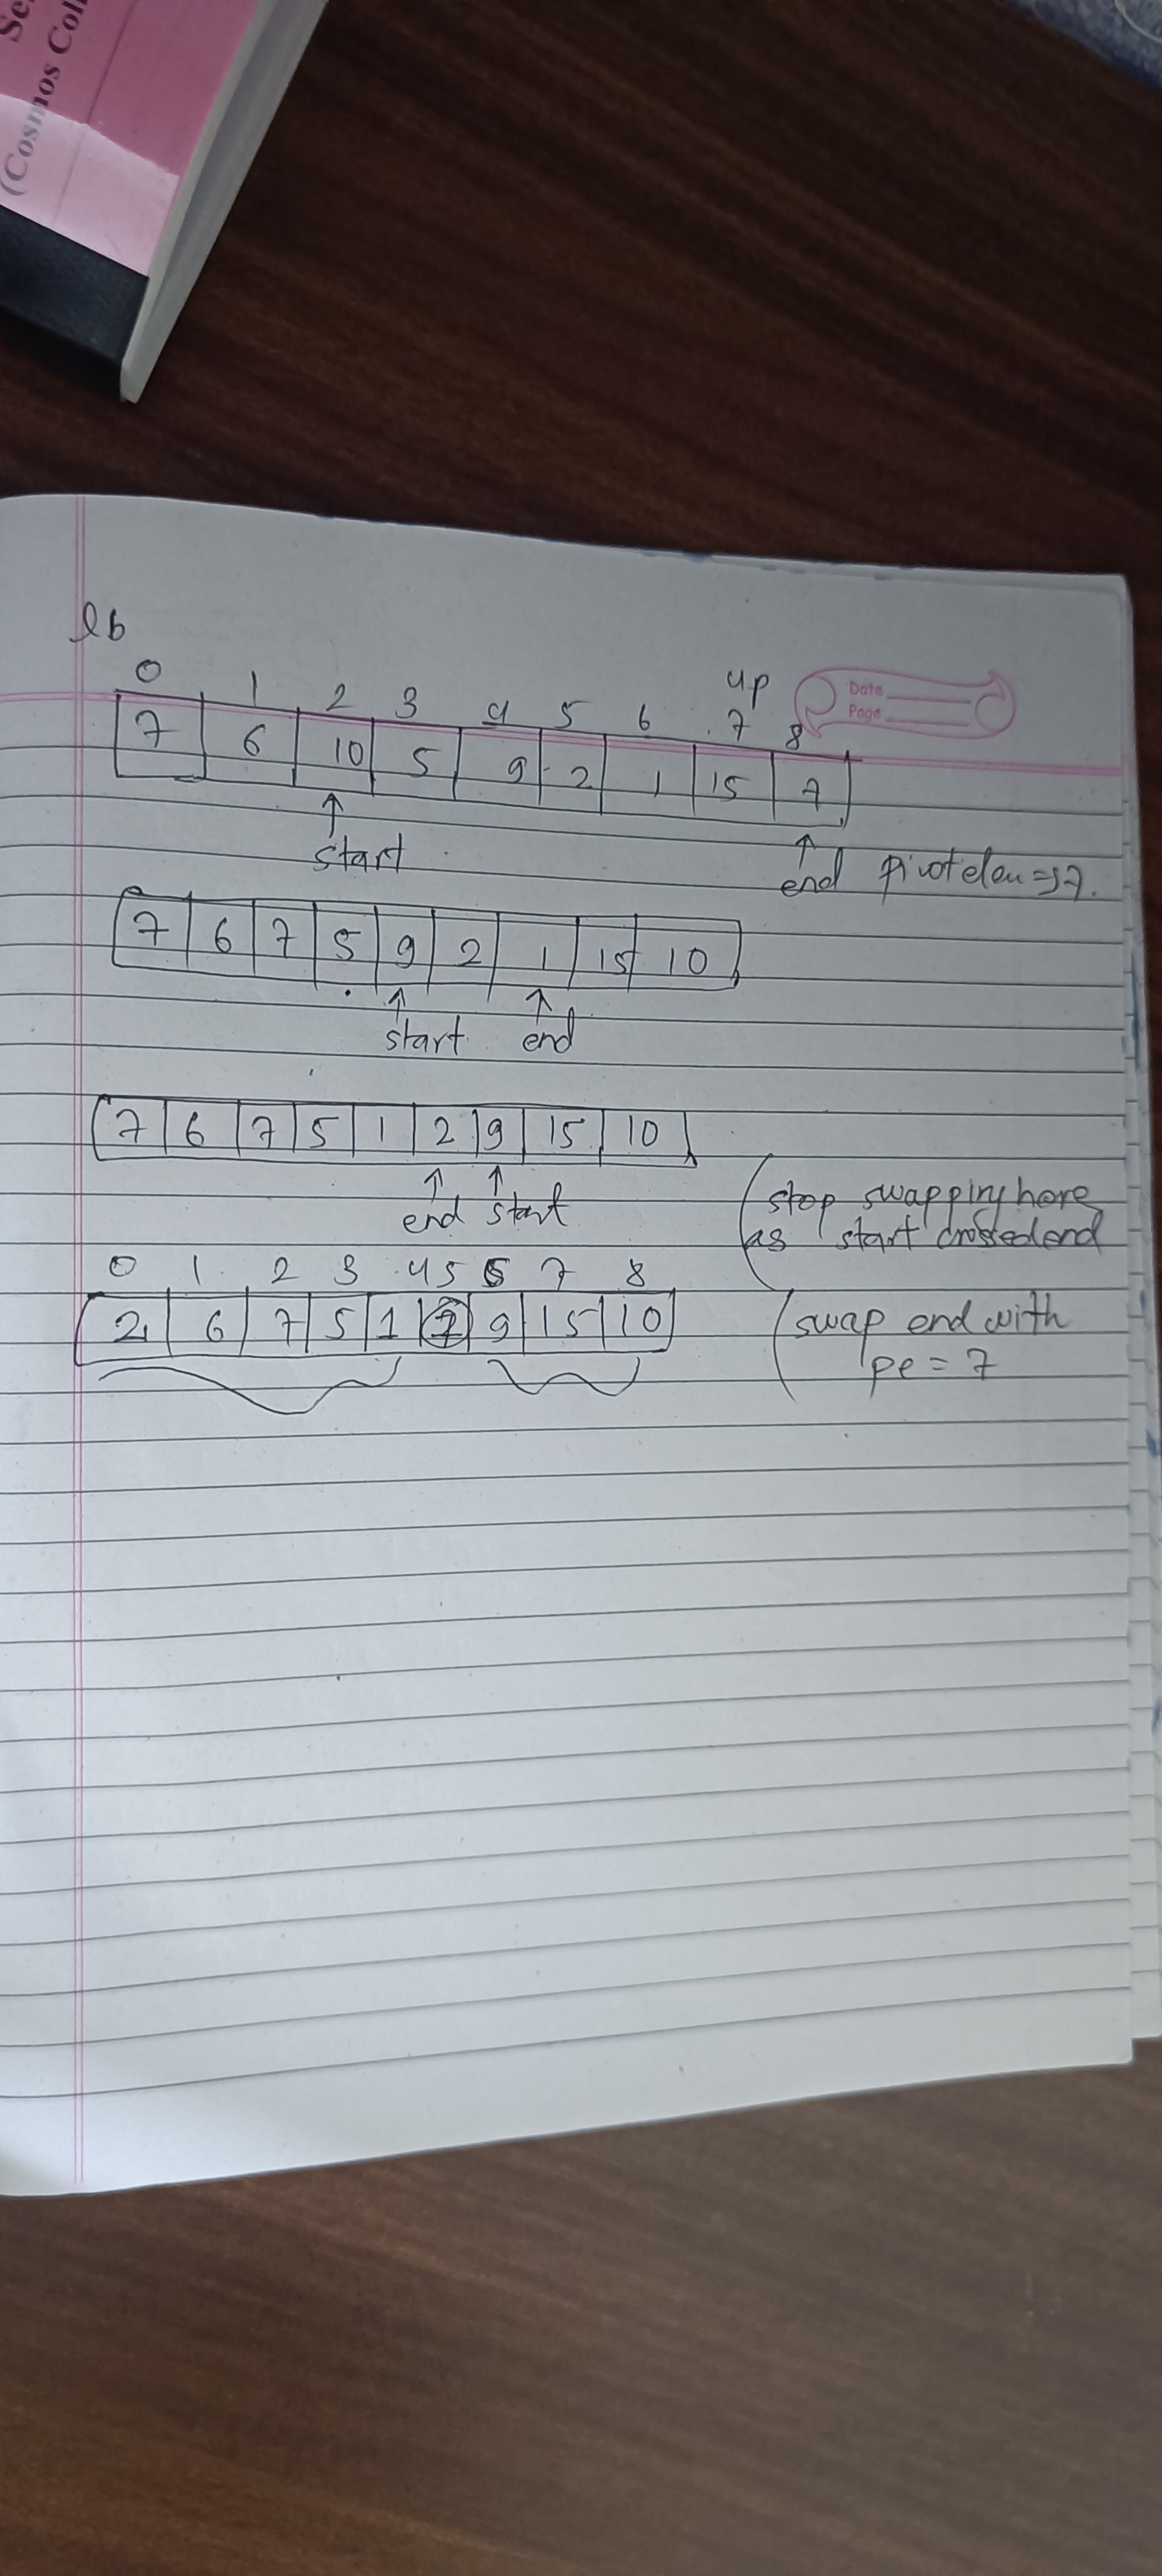 Se
(Cosmos Col
lb
up
0 1 2 3 4 5 6 7 8
Date
Page
7 6 10 5 9 2 1 15 7
start
end pivot elem => 7.
7 6 7 5 9 2 1 15 10
start end
7 6 7 5 1 2 9 15 10
end start
stop swapping here
as start crossed end
0 1 2 3 4 5 6 7 8
2 6 7 5 1 7 9 15 10
swap end with
pe = 7